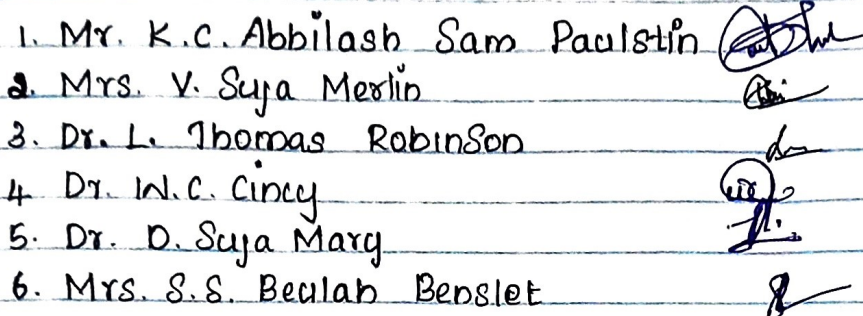 1. Mr. K.C. Abbilash Sam Paulstin
2. Mrs. V. Suja Merlin
3. Dr. L. Thomas Robinson
4 Dr. W.C. Cincy
5. Dr. D. Suja Mary
6. Mrs. S.S. Beulah Benslet